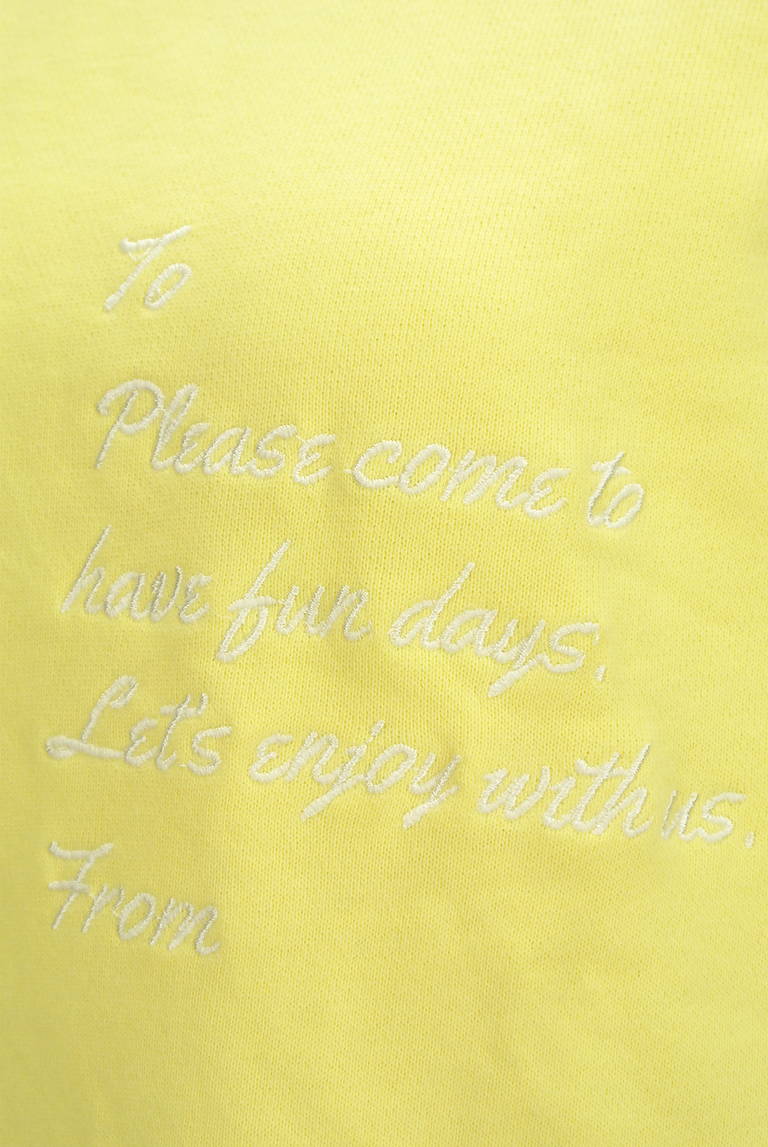 To
Please come to
have fun days.
Let's enjoy with us.
From